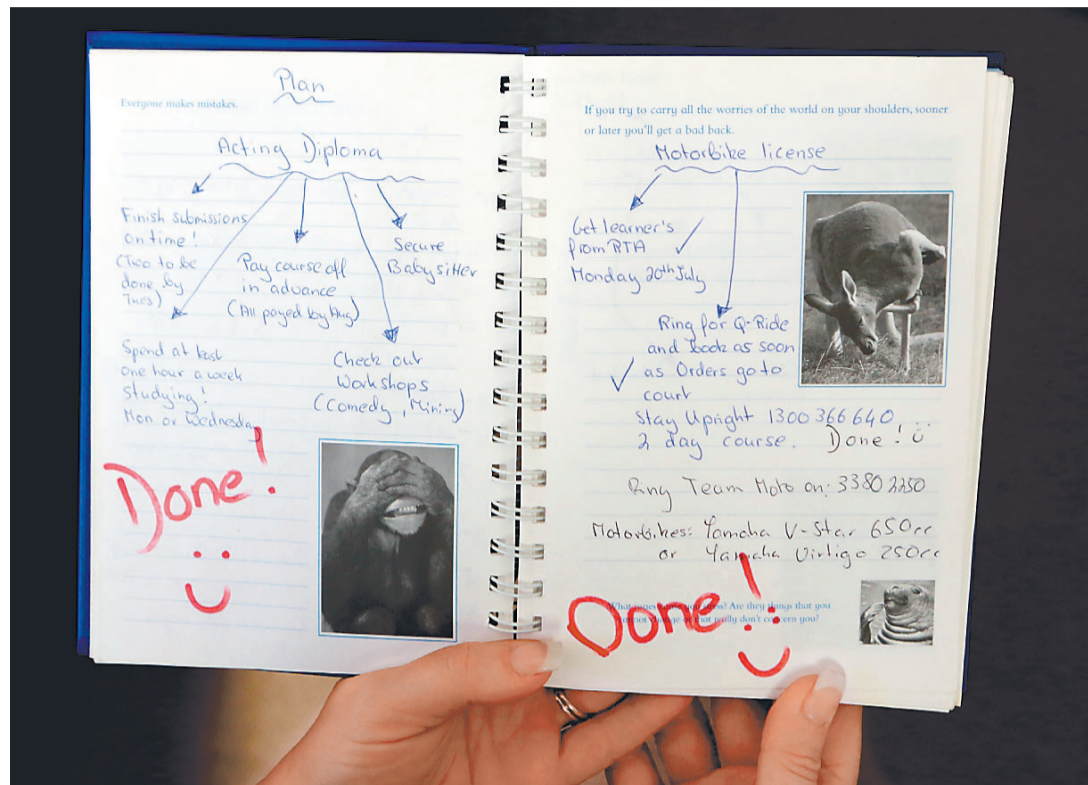 Plan
Everyone makes mistakes.
Acting Diploma
Finish submissions
on time!
(Two to be
done, by
Tues)
Pay course off
in advance
(All payed by Aug)
Secure
Babysitter
Spend at least
one hour a week
studying!
Mon or Wednesday
Check out
Workshops
(Comedy, Miming)
Done!
If you try to carry all the worries of the world on your shoulders, sooner
or later you'll get a bad back.
Motorbike license
Get learner's
from RTA
Monday 20th July
Ring for Q-Ride
and Book as soon
as Orders go to
court
Stay Upright 1300 366 640...
2 day course. Done!
Ring Team Moto on: 3380 2250
Motorbikes: Yamaha V-Star 650cc
or Yamaha Virtigo 250cc
What causes you stress? Are they things that you
cannot change or that really don't concern you?
Done!